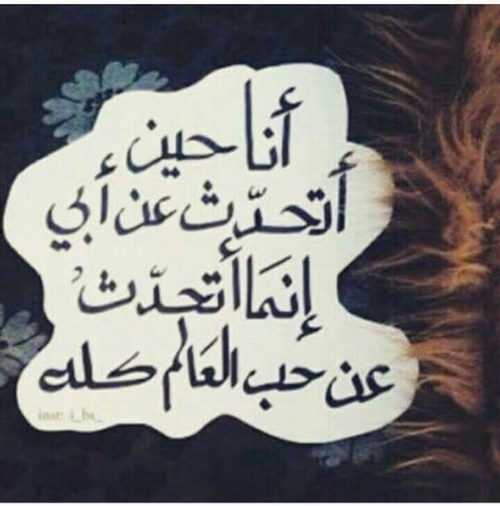 أنا حين
أتحدّث عن أبي
إنمَا أتحدّث
عن حب العَالم كله